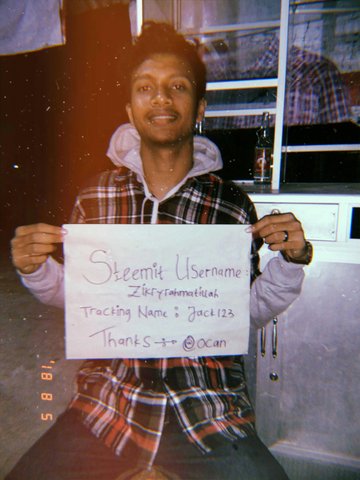 Steemit Username:
Zikryrahmatillah
Tracking Name : Jack123
Thanks → @ocan
'18 8 5